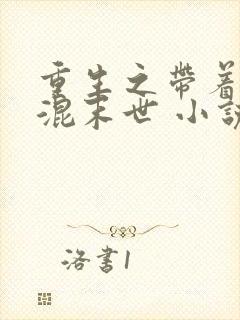 重生之帶着
混末世 小說
洛書1